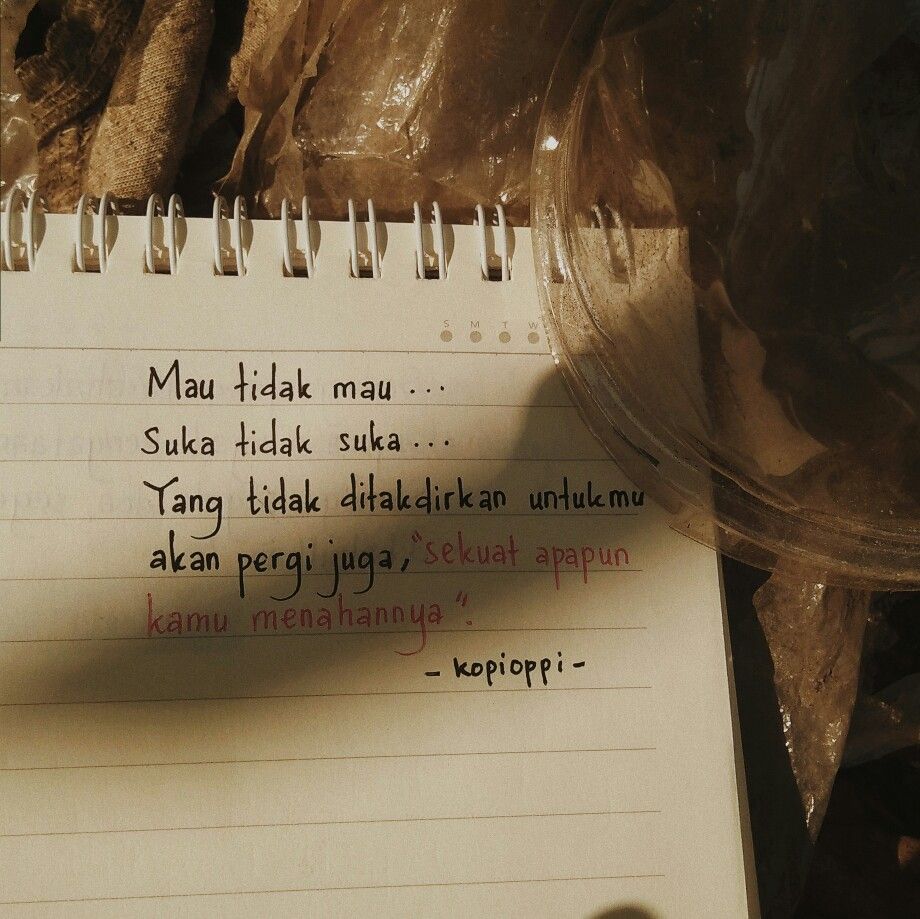 S M T W
Mau tidak mau ...
Suka tidak suka ...
Yang tidak ditakdirkan untukmu
akan pergi juga, "sekuat apapun
kamu menahannya".
- kopioppi -